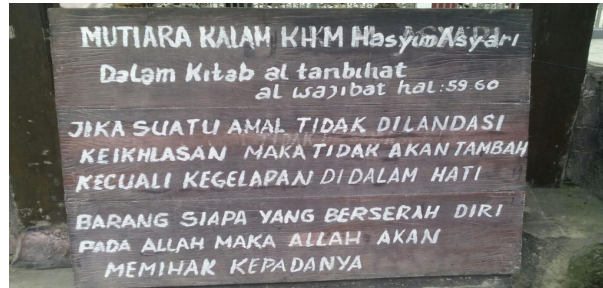 MUTIARA KALAM KH.M HasyimAsyari
Dalam Kitab al tanbihat
al wajibat hal:59.60
JIKA SUATU AMAL TIDAK DILANDASI
KEIKHLASAN MAKA TIDAK AKAN TAMBAH
KECUALI KEGELAPAN DIDALAM HATI
BARANG SIAPA YANG BERSERAH DIRI
PADA ALLAH MAKA ALLAH AKAN
MEMIHAK KEPADANYA